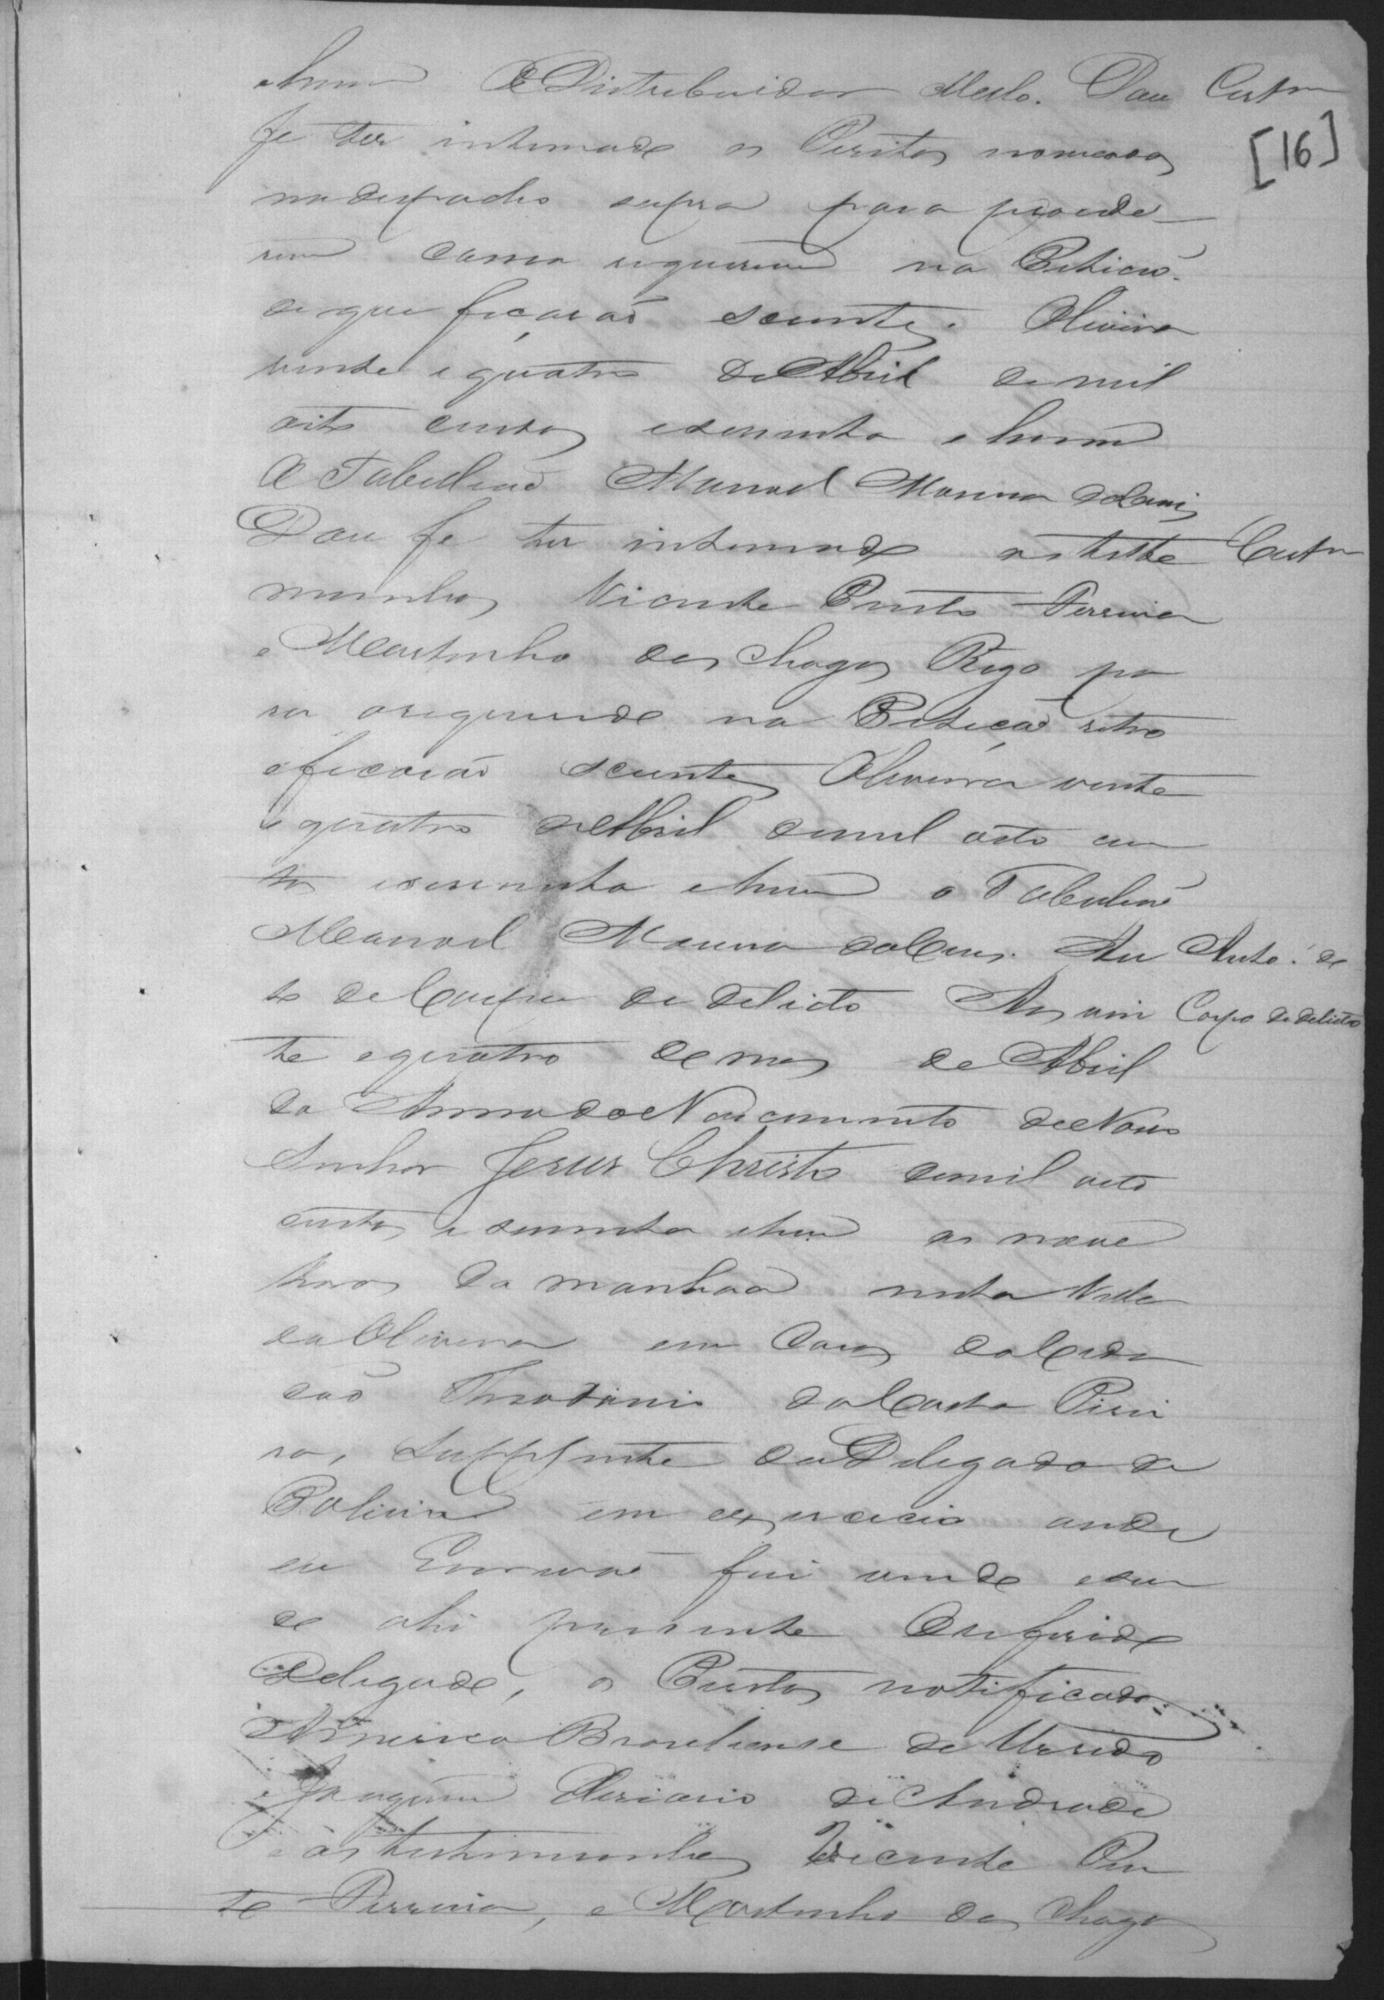 e hum O Distribuidor Mello. Dou Certam
fe ter intimado os Peritos nomeados
[16]
no despacho supra para procede-
rem como requerem na Peticaõ.
de que ficaraõ scientes. Oliveira
vinte e quatro de Abril de mil
oito centos e secenta e hum
O Tabelliaõ Manoel
Dou fe ter intimado as teste Certam
munhas Vicente Pinto Ferreira
e Martinho das Chagas Rego pa
ra o requerido na Petiçaõ retro
e ficaraõ scientes Oliveira vinte
e quatro de Abril de mil oito cen
tos e secenta e hum o Tabeliaõ
Manoel Au Auto de
to de Corpo de delicto Aos vin Corpo de delicto
te e quatro do mes de Abril
do Anno do Nascimento de Nosso
Senhor Jesus Christo de mil oito
centos e secenta e hum as nove
horas da manhaã nesta Villa
da Oliveira em Casas do Cida
daõ Theotonio da Costa Perei
ra, Supplente do Delegado de
Policia em exercicio onde
eu Escrivaõ fui vindo e sen
do ahi presente o referido
Delegado, os Peritos notificados
Americo Brasiliense de Macedo
e Joaquim de Andrade
e as testemunhas Vicente Pin
to Ferreira, e Martinho das Chagas